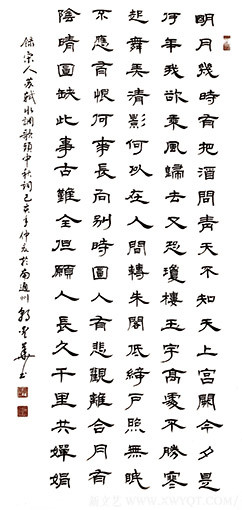 明月幾時有把酒問青天不知天上宮闕今夕是
何年我欲乘風歸去又恐瓊樓玉宇高處不勝寒
起舞弄清影何似在人間轉朱閣低綺戶照無眠
不應有恨何事長向別時圓人有悲歡離合月有
陰晴圓缺此事古難全但願人長久千里共嬋娟
錄宋人苏軾水調歌頭中秋詞己亥年仲夏於南通州